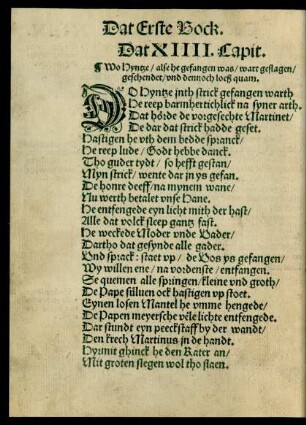 Dat Erste Bock.
Dat XIIII. Capit.
¶ Wo Hyntze / alse he gefangen was / wart geslagen /
geschendet / vnd dennoch loeß quam.
DO Hyntze jnth strick gefangen warth
He reep barmhertichlick na syner arth.
Dat hörde de vorgesechte Martinet /
De dar dat strick hadde geset.
Hastigen he vth dem bedde spranck /
He reep lude / Godt hebbe danck.
Tho guder tydt / so hefft gestan /
Myn strick / wente dar jn ys gefan.
De honre deeff / na mynem wane /
Nu werth betalet vnse Hane.
He entfengede eyn licht mith der hast /
Alle dat volck sleep gantz fast.
He weckede Moder vnde Vader /
Dartho dat gesynde alle gader.
Vnd sprack: staet vp / de Vos ys gefangen /
Wy willen ene / na vordenste / entfangen.
Se quemen alle springen / kleine vnd groth /
De Pape sülven ock hastigen vp stoet.
Eynen losen Mantel he vmme hengede /
De Papen meyersche vele lichte entfengede.
Dar stundt eyn peeckstaff by der wandt /
Den krech Martinus jn de handt.
Hyrmit ghinck he den Kater an /
Mit groten slegen wol tho slaen.